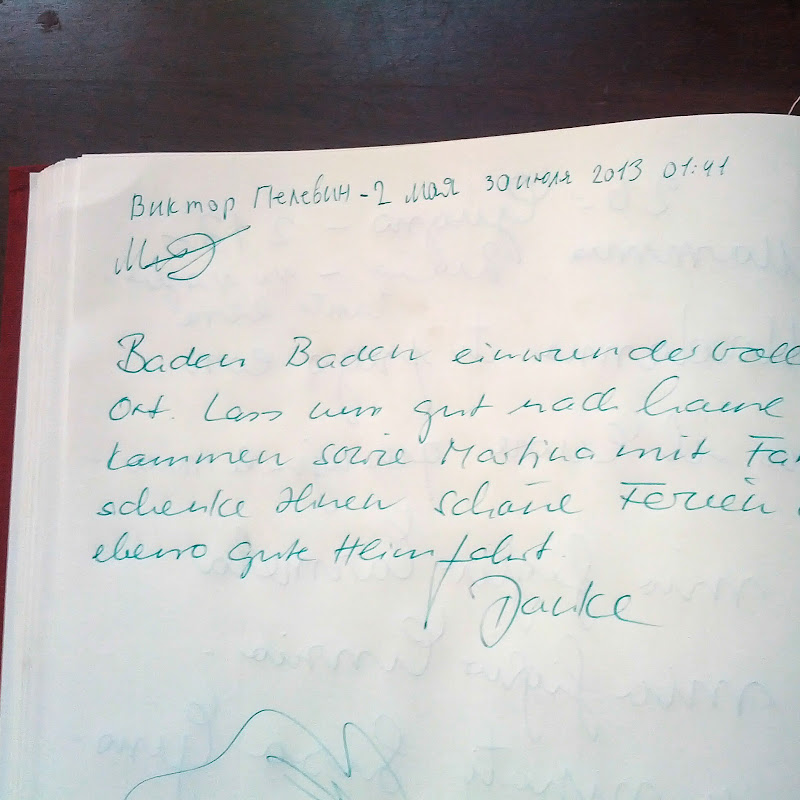 Виктор Пелевин - 2 мая 30 июля 2013 01:41
Baden Baden ein wundesvoll
Ort. Lass uns gut nach hause
kommen sowie Martina mit Fa
schenke Ihnen schöne Ferien
ebenso gute Heimfahrt.
Danke